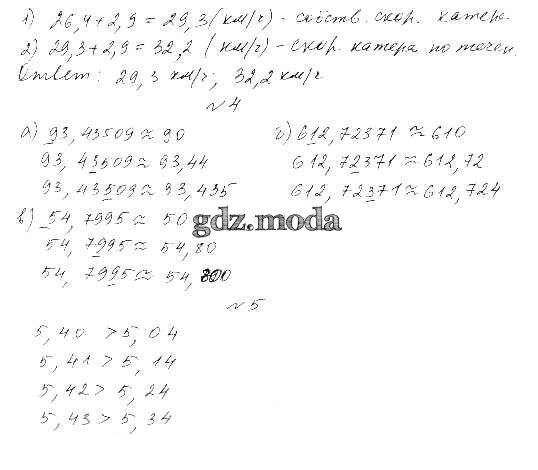 1) 26,4+2,9 = 29,3 (км/ч) - собств. скор. катера.
2) 29,3+2,9 = 32,2 (км/ч) - скор. катера по течен.
Ответ: 29,3 км/ч; 32,2 км/ч
№4
а) 93,43509 ≈ 90
93,43509 ≈ 93,44
93,43509 ≈ 93,435
б) 612,72371 ≈ 610
612,72371 ≈ 612,72
612,72371 ≈ 612,724
в) 54,7995 ≈ 50
54,7995 ≈ 54,80
54,7995 ≈ 54,800
gdz.moda
№5
5,40 > 5,04
5,41 > 5,14
5,42 > 5,24
5,43 > 5,34